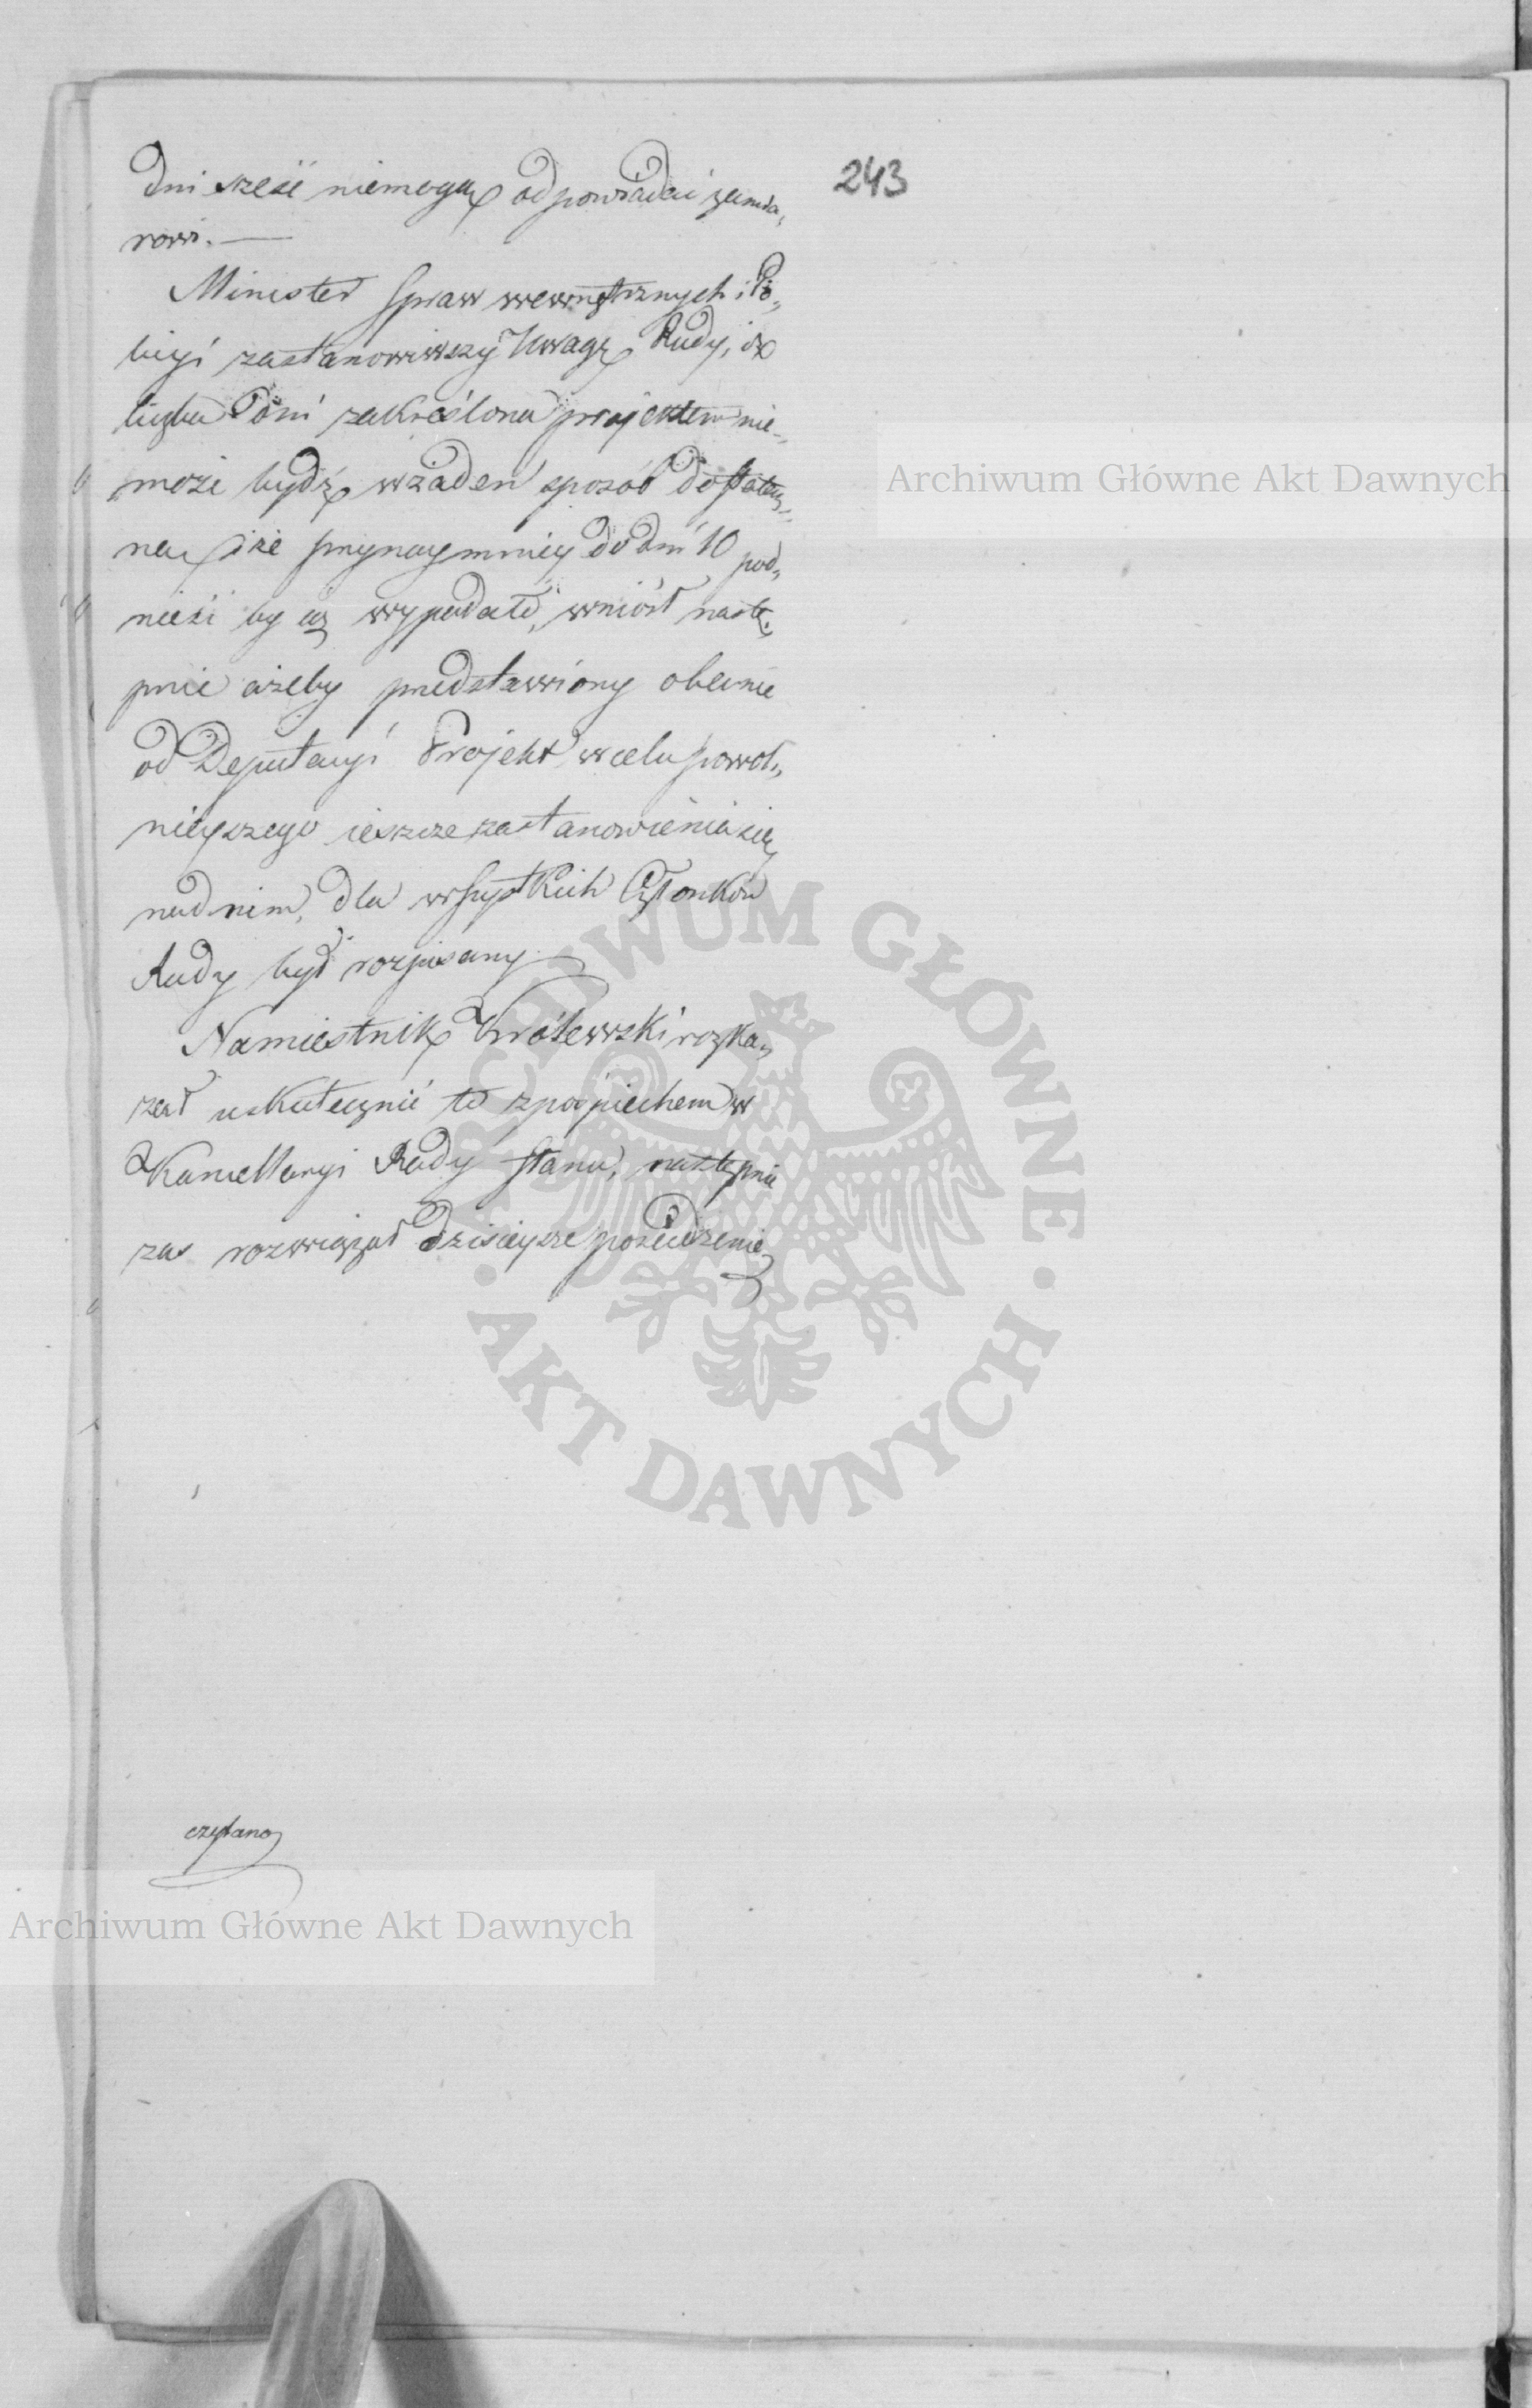 243
dni sześć niemogą odpowiadać zamia„
rowi. —
Minister Spraw wewnętrznych i Po„
licyi zastanowiwszy Uwagę Rady, iż
liczba dni zakreślona projektem nie„
może bydź w żaden sposób dostatecz„
na, i że przynaymniey do dni 10 pod„
nieść by ią wypadało, wniósł nastę„
pnie ażeby przedstawiony obecnie
od Deputacyi Projekt w celu powol„
nieyszego ieszcze zastanowienia się
nad nim, dla wszystkich Członków
Rady był rozpisany.
Namiestnik Królewski rozka„
zał uskutecznić to z pośpiechem w
Kancellaryi Rady Stanu, następnie
zas rozwiązał dzisieysze posiedzenie
czytano
Archiwum Główne Akt Dawnych
Archiwum Główne Akt Dawnych
ARCHIWUM GŁÓWNE
· AKT DAWNYCH ·